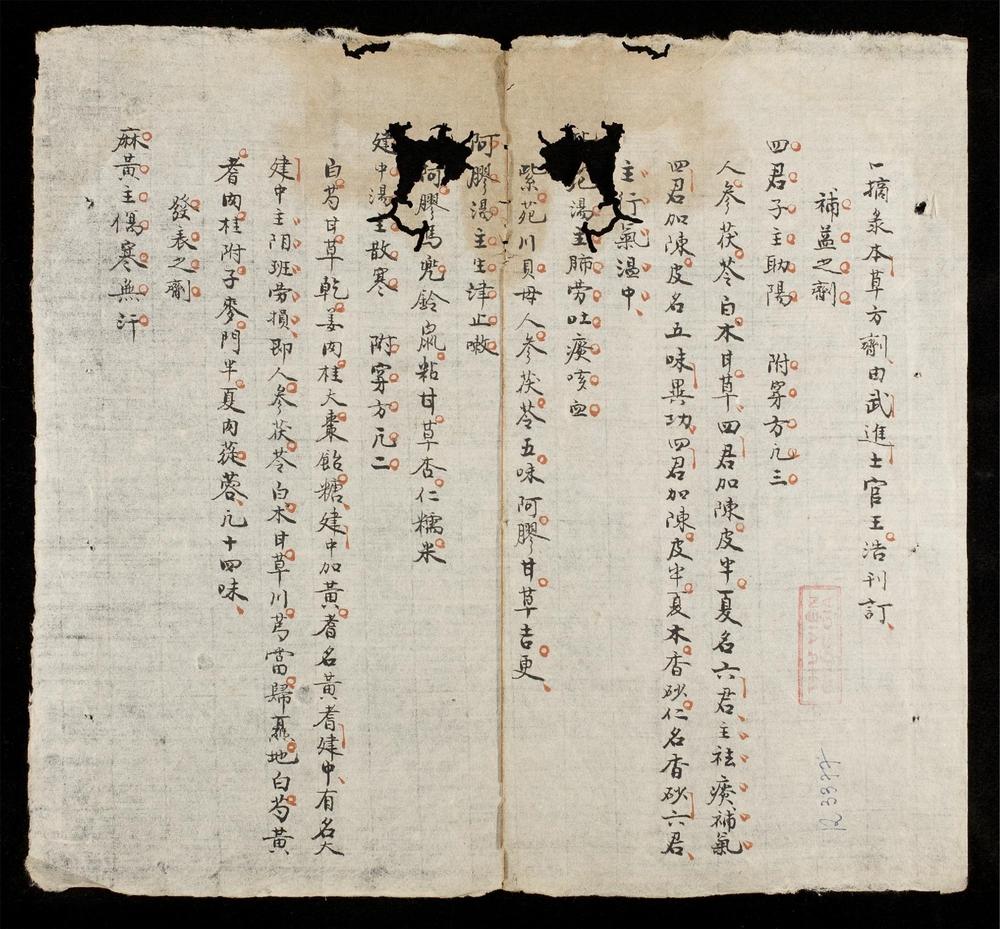 一摘彖本草方劑由武進士官王浩刊訂
補益之劑
四君子主助陽 附穿方凢三
人參茯苓白木甘草四君加陳皮半夏名六君主祛痰補氣
四君加陳皮名五味異功四君加陳皮半夏木香砂仁名香砂六君
主行氣温中
菀湯主肺劳吐痰咳血
紫苑川貝母人參茯苓五味阿膠甘草吉更
阿膠湯主生津止嗽
阿膠馬兜鈴鼠粘甘草杏仁糯米
建中湯主散寒 附穿方凢二
白芍甘草乾姜肉桂大棗飴糖建中加黃耆名黃耆建中有名大
建中主阴班劳損即人參茯苓白木甘草川芎當歸熟地白芍黃
耆肉桂附子麥門半夏肉蓯蓉凢十四味
發表之劑
麻黃主傷寒無汗